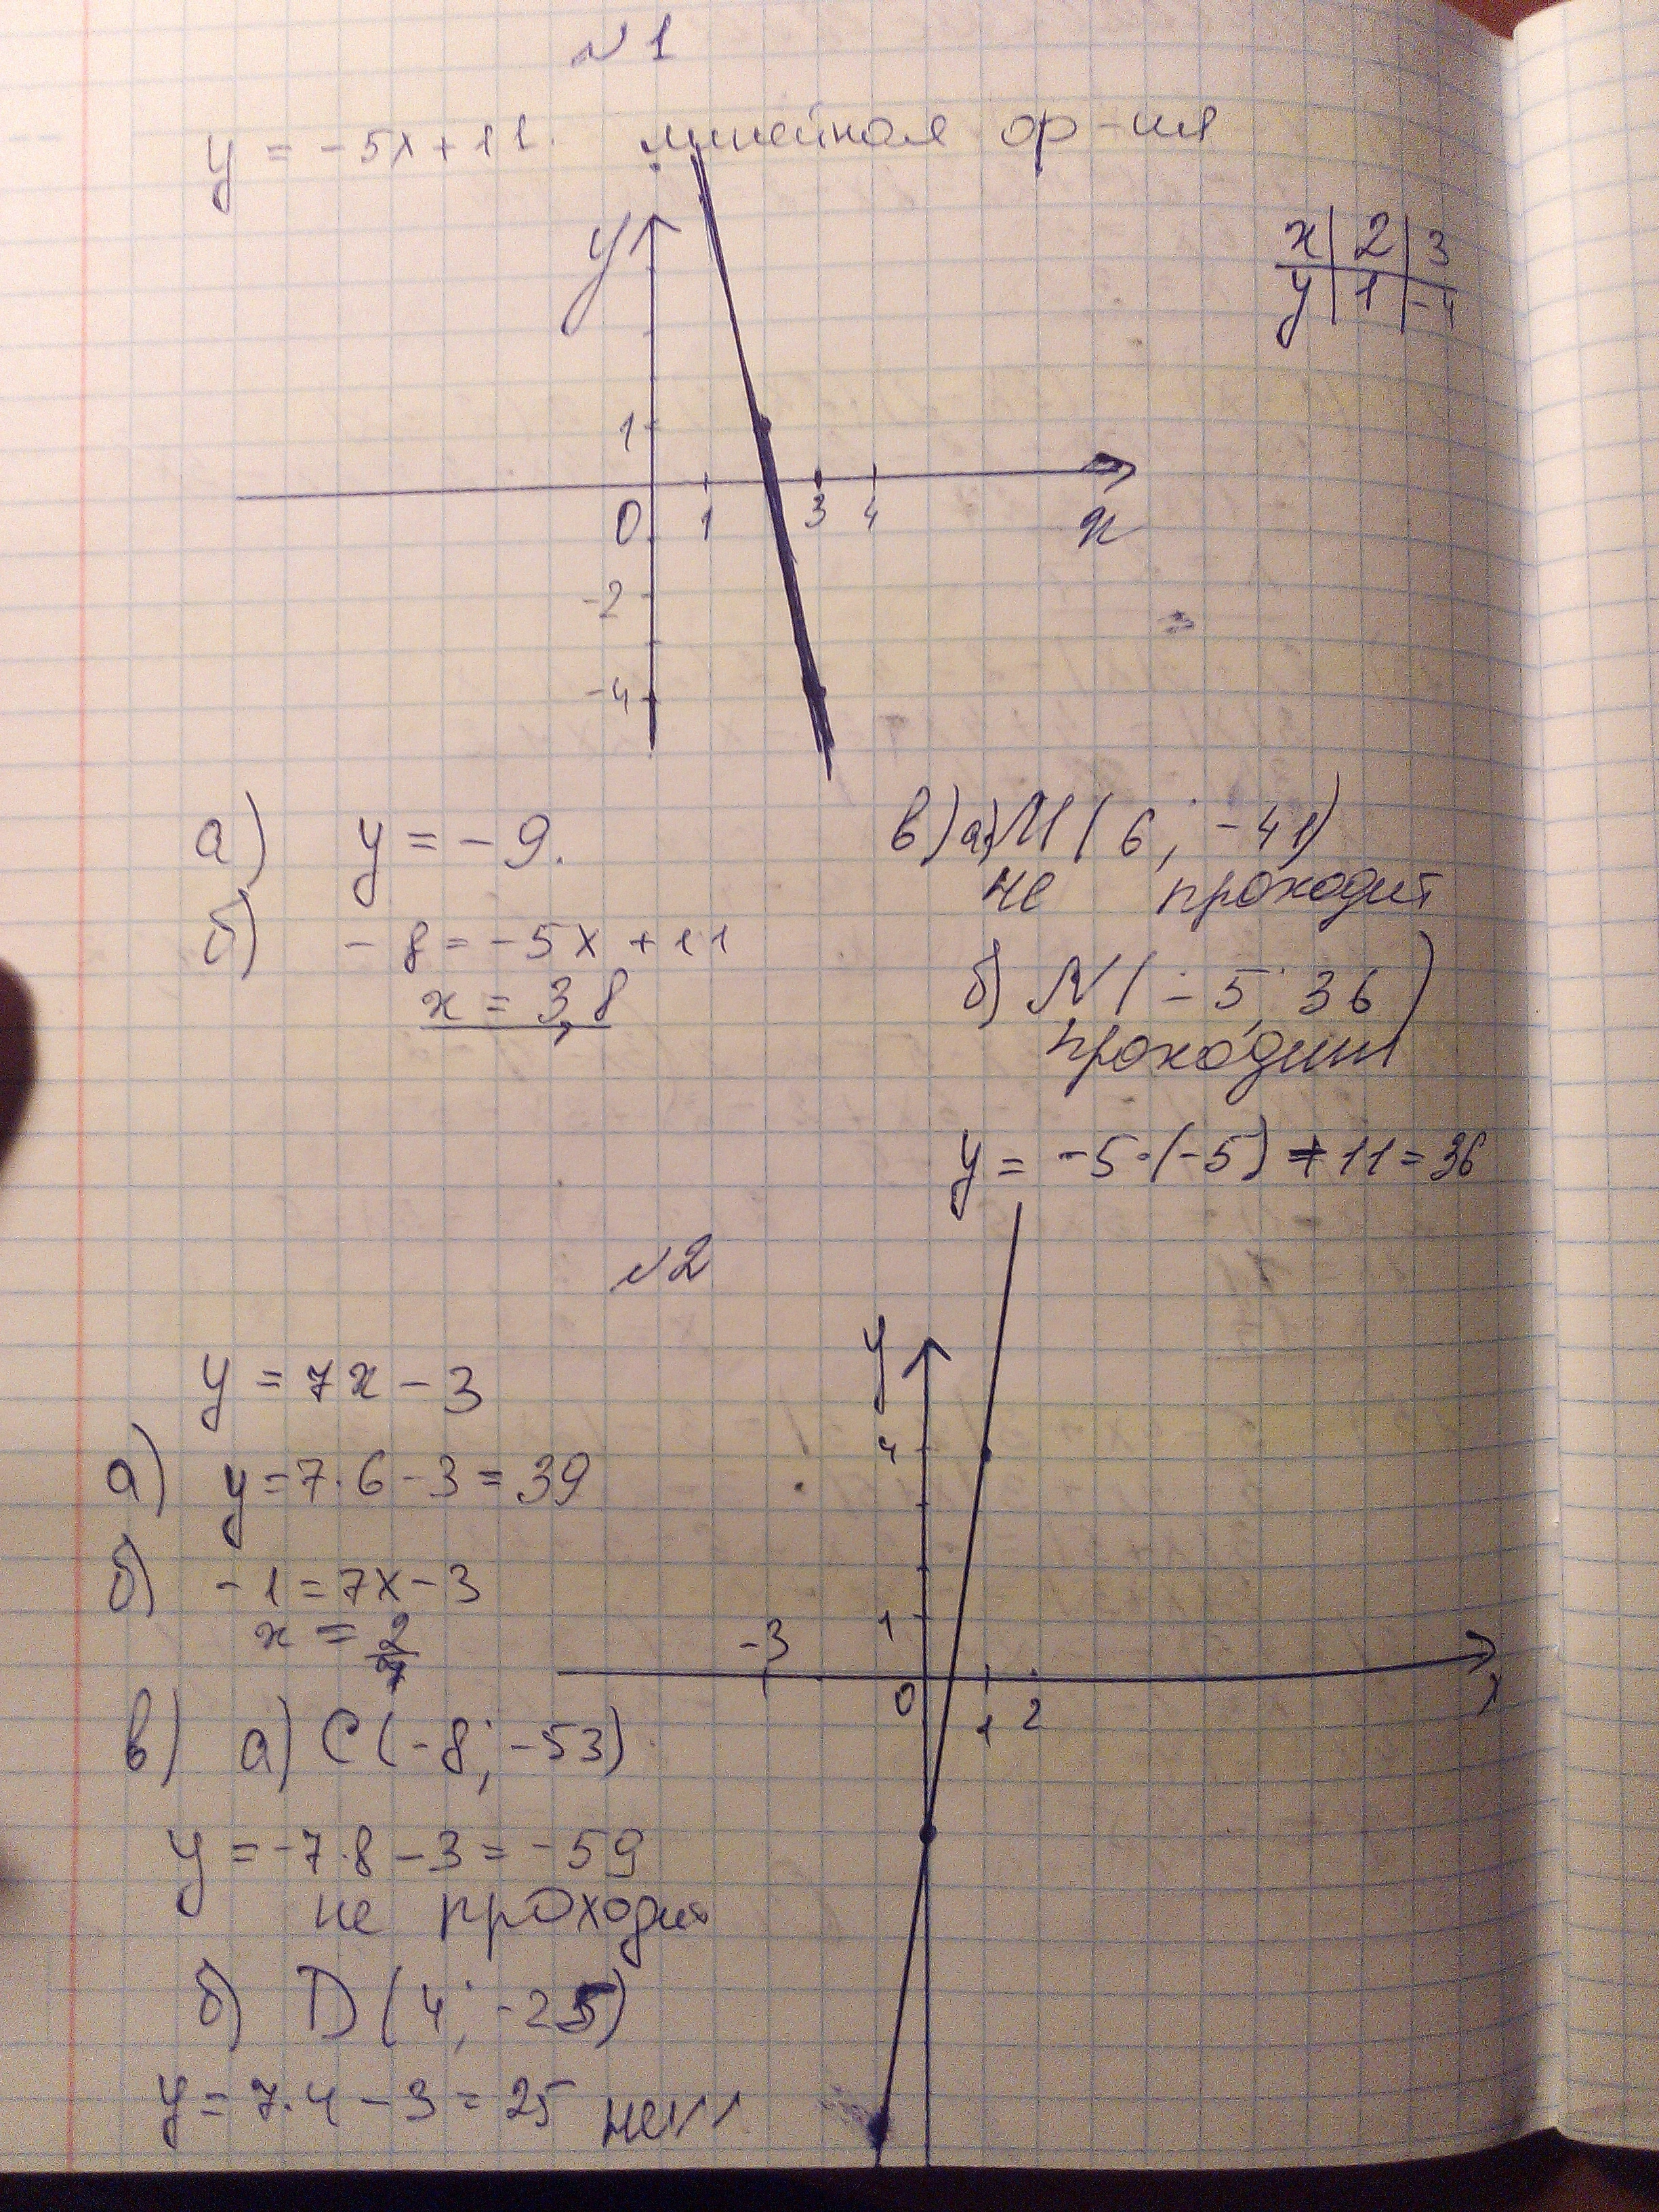 №1
y = -5x+11. линейная ф-ия
x | 2 | 3
y | 1 | -4
y
1
0 1 3 4 x
-2
-4
а) y = -9.
б) -8 = -5x + 11
x = 3,8
в) а) M ( 6 ; -41)
не проходит
б) N ( -5; 36 )
проходит
y = -5·(-5) + 11 = 36
№2
y = 7x - 3
а) y = 7·6 - 3 = 39
б) -1 = 7x - 3
x = 2/7
в) а) C (-8 ; -53)
y = -7·8 - 3 = -59
не проходит
б) D (4 ; -25)
y = 7·4 - 3 = 25 не
y
4
1
-3 0 1 2 x